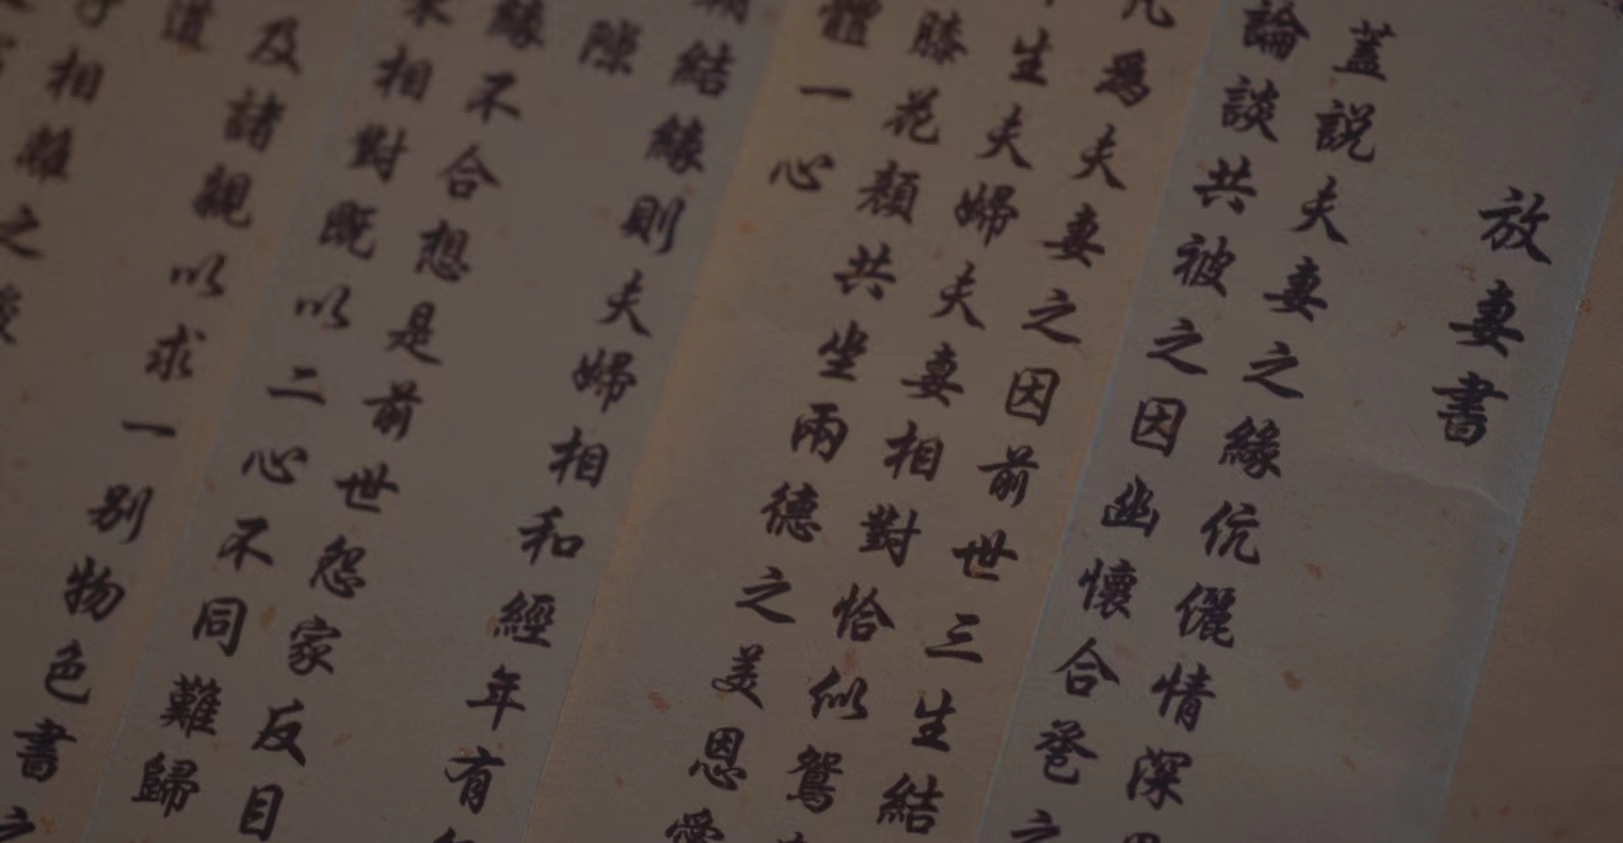 放妻書
蓋説夫妻之緣伉儷情深
論談共被之因幽懷合卺之
凡爲夫妻之因前世三生結
生夫婦夫妻相對恰似鴛
膝花顏共坐兩德之美恩愛
體一心
結緣則夫婦相和經年有
隙
緣不合想是前世怨家反目
來相對既以二心不同難歸
及諸親以求一別物色書之
道
相離之